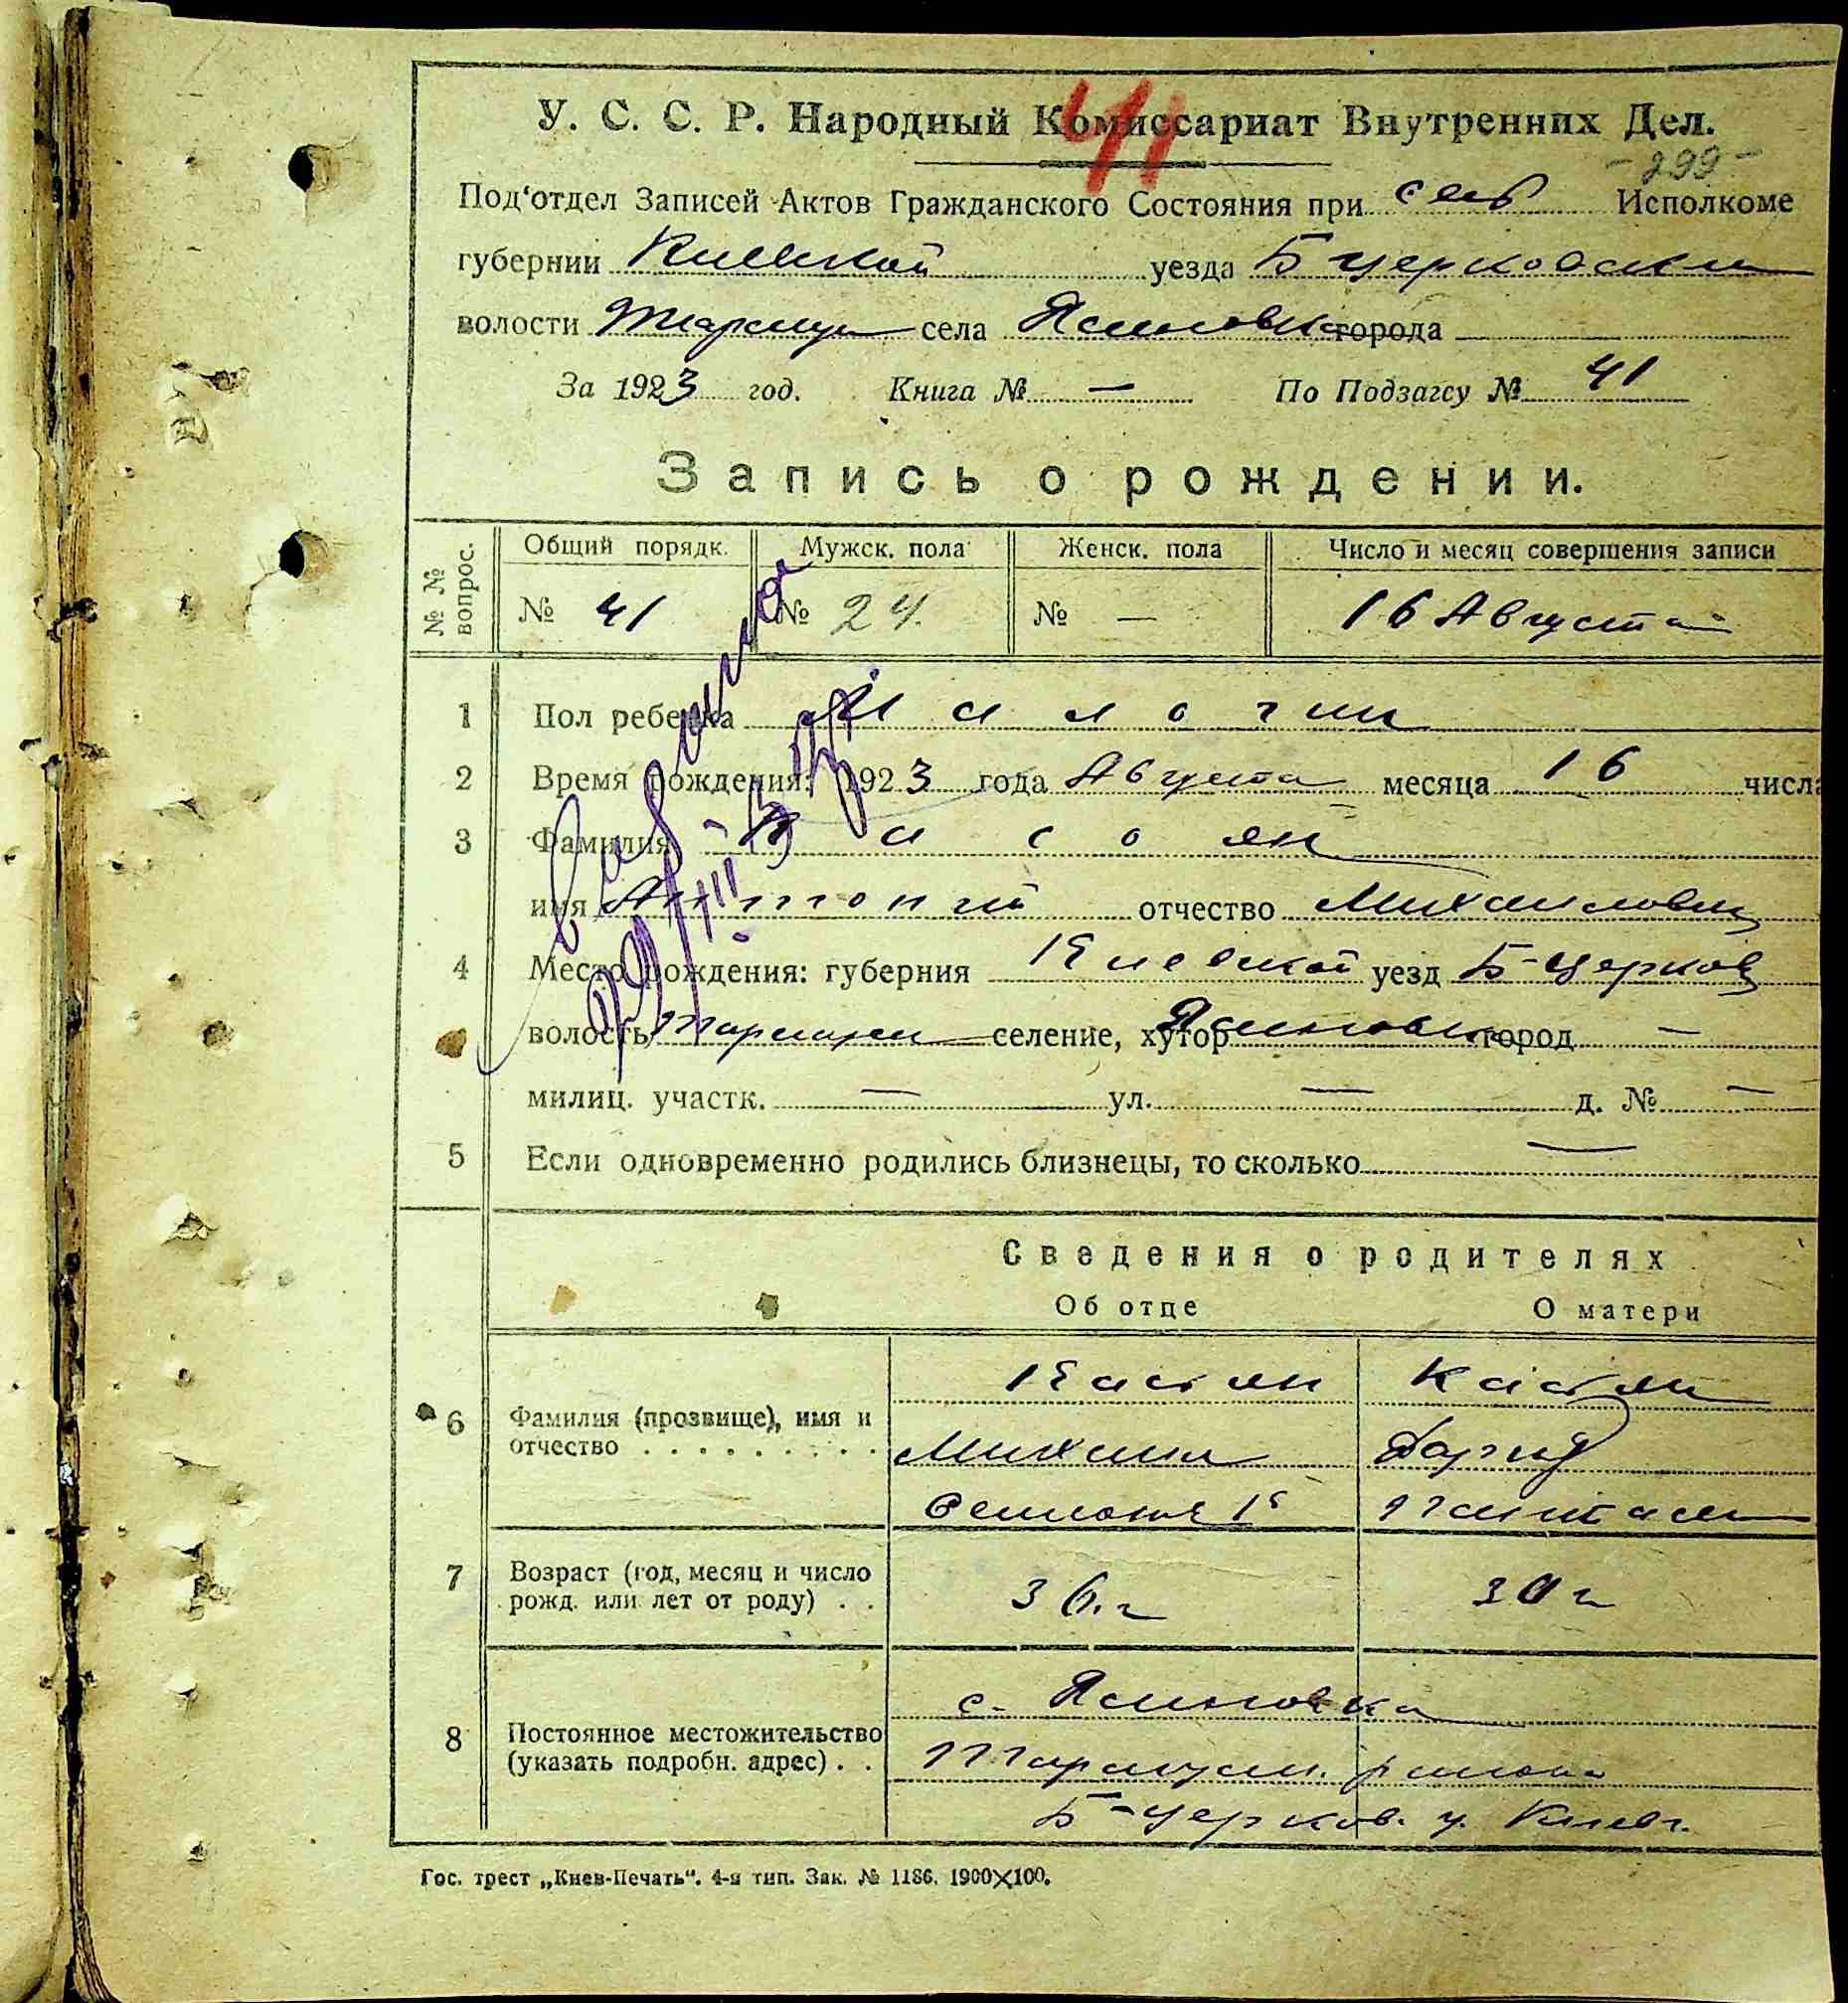 41
У. С. С. Р. Народный Комиссариат Внутренних Дел.
- 299 -
Под‘отдел Записей Актов Гражданского Состояния при сель Исполкоме
губернии Киевской уезда Б Церковски
волости села Ясиновка города
За 1923 год. Книга № — По Подзагсу № 41
Запись о рождении.
№ № вопрос. Общий порядк. Мужск. пола Женск. пола Число и месяц совершения записи
№ 41 № 24. № — 16 Августа
1 Пол ребенка
2 Время рождения: 1923 года Августа месяца 16 числа
3 Фамилия Касян
имя Антоний отчество Михаилович
4 Место рождения: губерния Киевской уезд Б-Церков
волость селение, хутор Ясиновка город —
милиц. участк. — ул. — д. № —
5 Если одновременно родились близнецы, то сколько —
Сведения о родителях
Об отце О матери
Касян Касян
6 Фамилия (прозвище), имя и отчество . . . . . . . . . Михаил Дария
7 Возраст (год, месяц и число рожд. или лет от роду) . . 36.г 30 г
8 Постоянное местожительство (указать подробн. адрес) . . с. Ясиновка
района
Б-Церков. у. Киев г.
Гос. трест „Киев-Печать“. 4-я тип. Зак. № 1186. 1900×100.